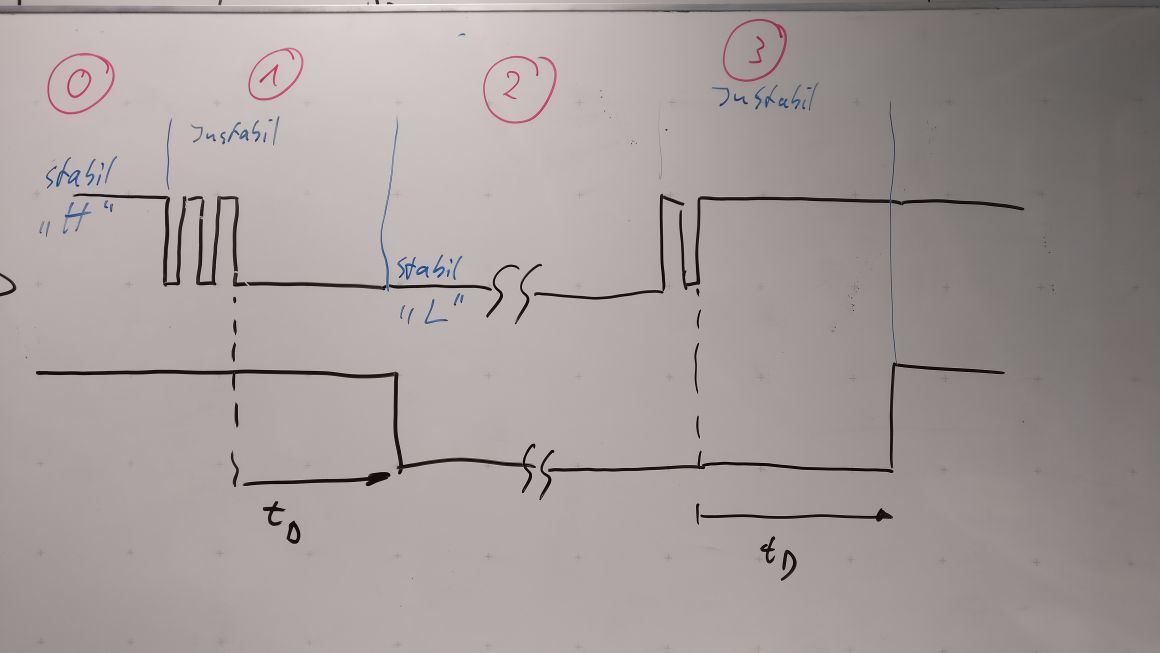 0
1
2
3
Instabil
Instabil
stabil
„H“
stabil
„L“
tD
tD